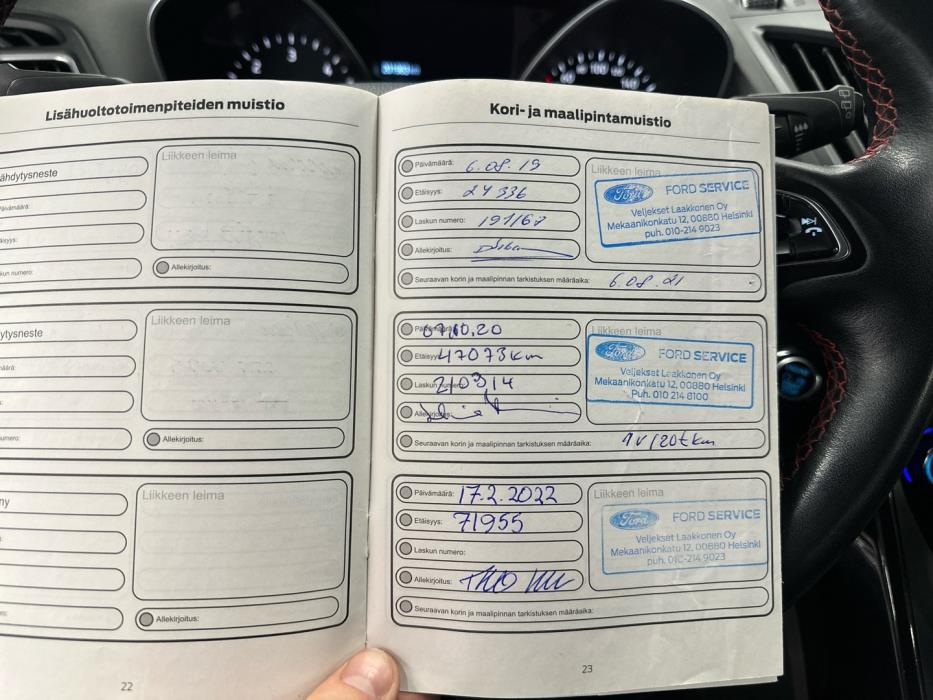 Lisähuoltotoimenpiteiden muistio
ähdytysneste
Päivämäärä:
äisyys:
kun numero:
Liikkeen leima
Allekirjoitus:
ytysneste
äärä:
numero:
Liikkeen leima
Allekirjoitus:
ny
Liikkeen leima
Allekirjoitus:
22
Kori- ja maalipintamuistio
Päivämäärä: 6.08.19
Etäisyys: 27336
Laskun numero: 191/67
Allekirjoitus:
Liikkeen leima
Ford FORD SERVICE
Veljekset Laakkonen Oy
Mekaanikonkatu 12, 00880 Helsinki
puh. 010-214 9023
Seuraavan korin ja maalipinnan tarkistuksen määräaika: 6.08.21
Päivämäärä: 07.10.20
Etäisyys: 47073km
Laskun numero: 210314
Allekirjoitus:
Liikkeen leima
Ford FORD SERVICE
Veljekset Laakkonen Oy
Mekaanikonkatu 12, 00880 Helsinki
Puh. 010 214 8100
Seuraavan korin ja maalipinnan tarkistuksen määräaika: 1v/20tkm
Päivämäärä: 17.2.2022
Etäisyys: 71955
Laskun numero:
Allekirjoitus:
Liikkeen leima
Ford FORD SERVICE
Veljekset Laakkonen Oy
Mekaanikonkatu 12, 00880 Helsinki
puh. 010-214 9023
Seuraavan korin ja maalipinnan tarkistuksen määräaika:
23